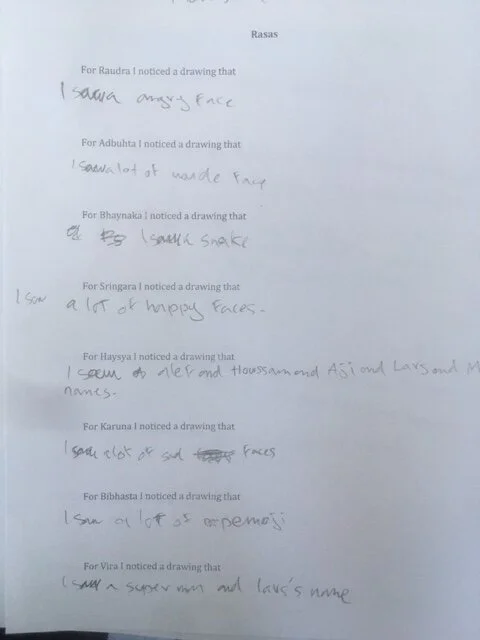 Rasas
For Raudra I noticed a drawing that
I saw a angry Face
For Adbuhta I noticed a drawing that
I saw a lot of wande Face
For Bhaynaka I noticed a drawing that
I saw a snake
For Sringara I noticed a drawing that
I saw a lot of happy Faces.
For Haysya I noticed a drawing that
I seem alef and Houssam and Aji and Lars and M
names.
For Karuna I noticed a drawing that
I saw a lot of sad Faces
For Bibhasta I noticed a drawing that
I saw a lot of emoji
For Vira I noticed a drawing that
I saw a super man and lars's name